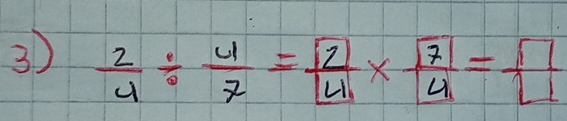 3) 2/4 ÷ 4/7 = 2/4 × 7/4 = □/□